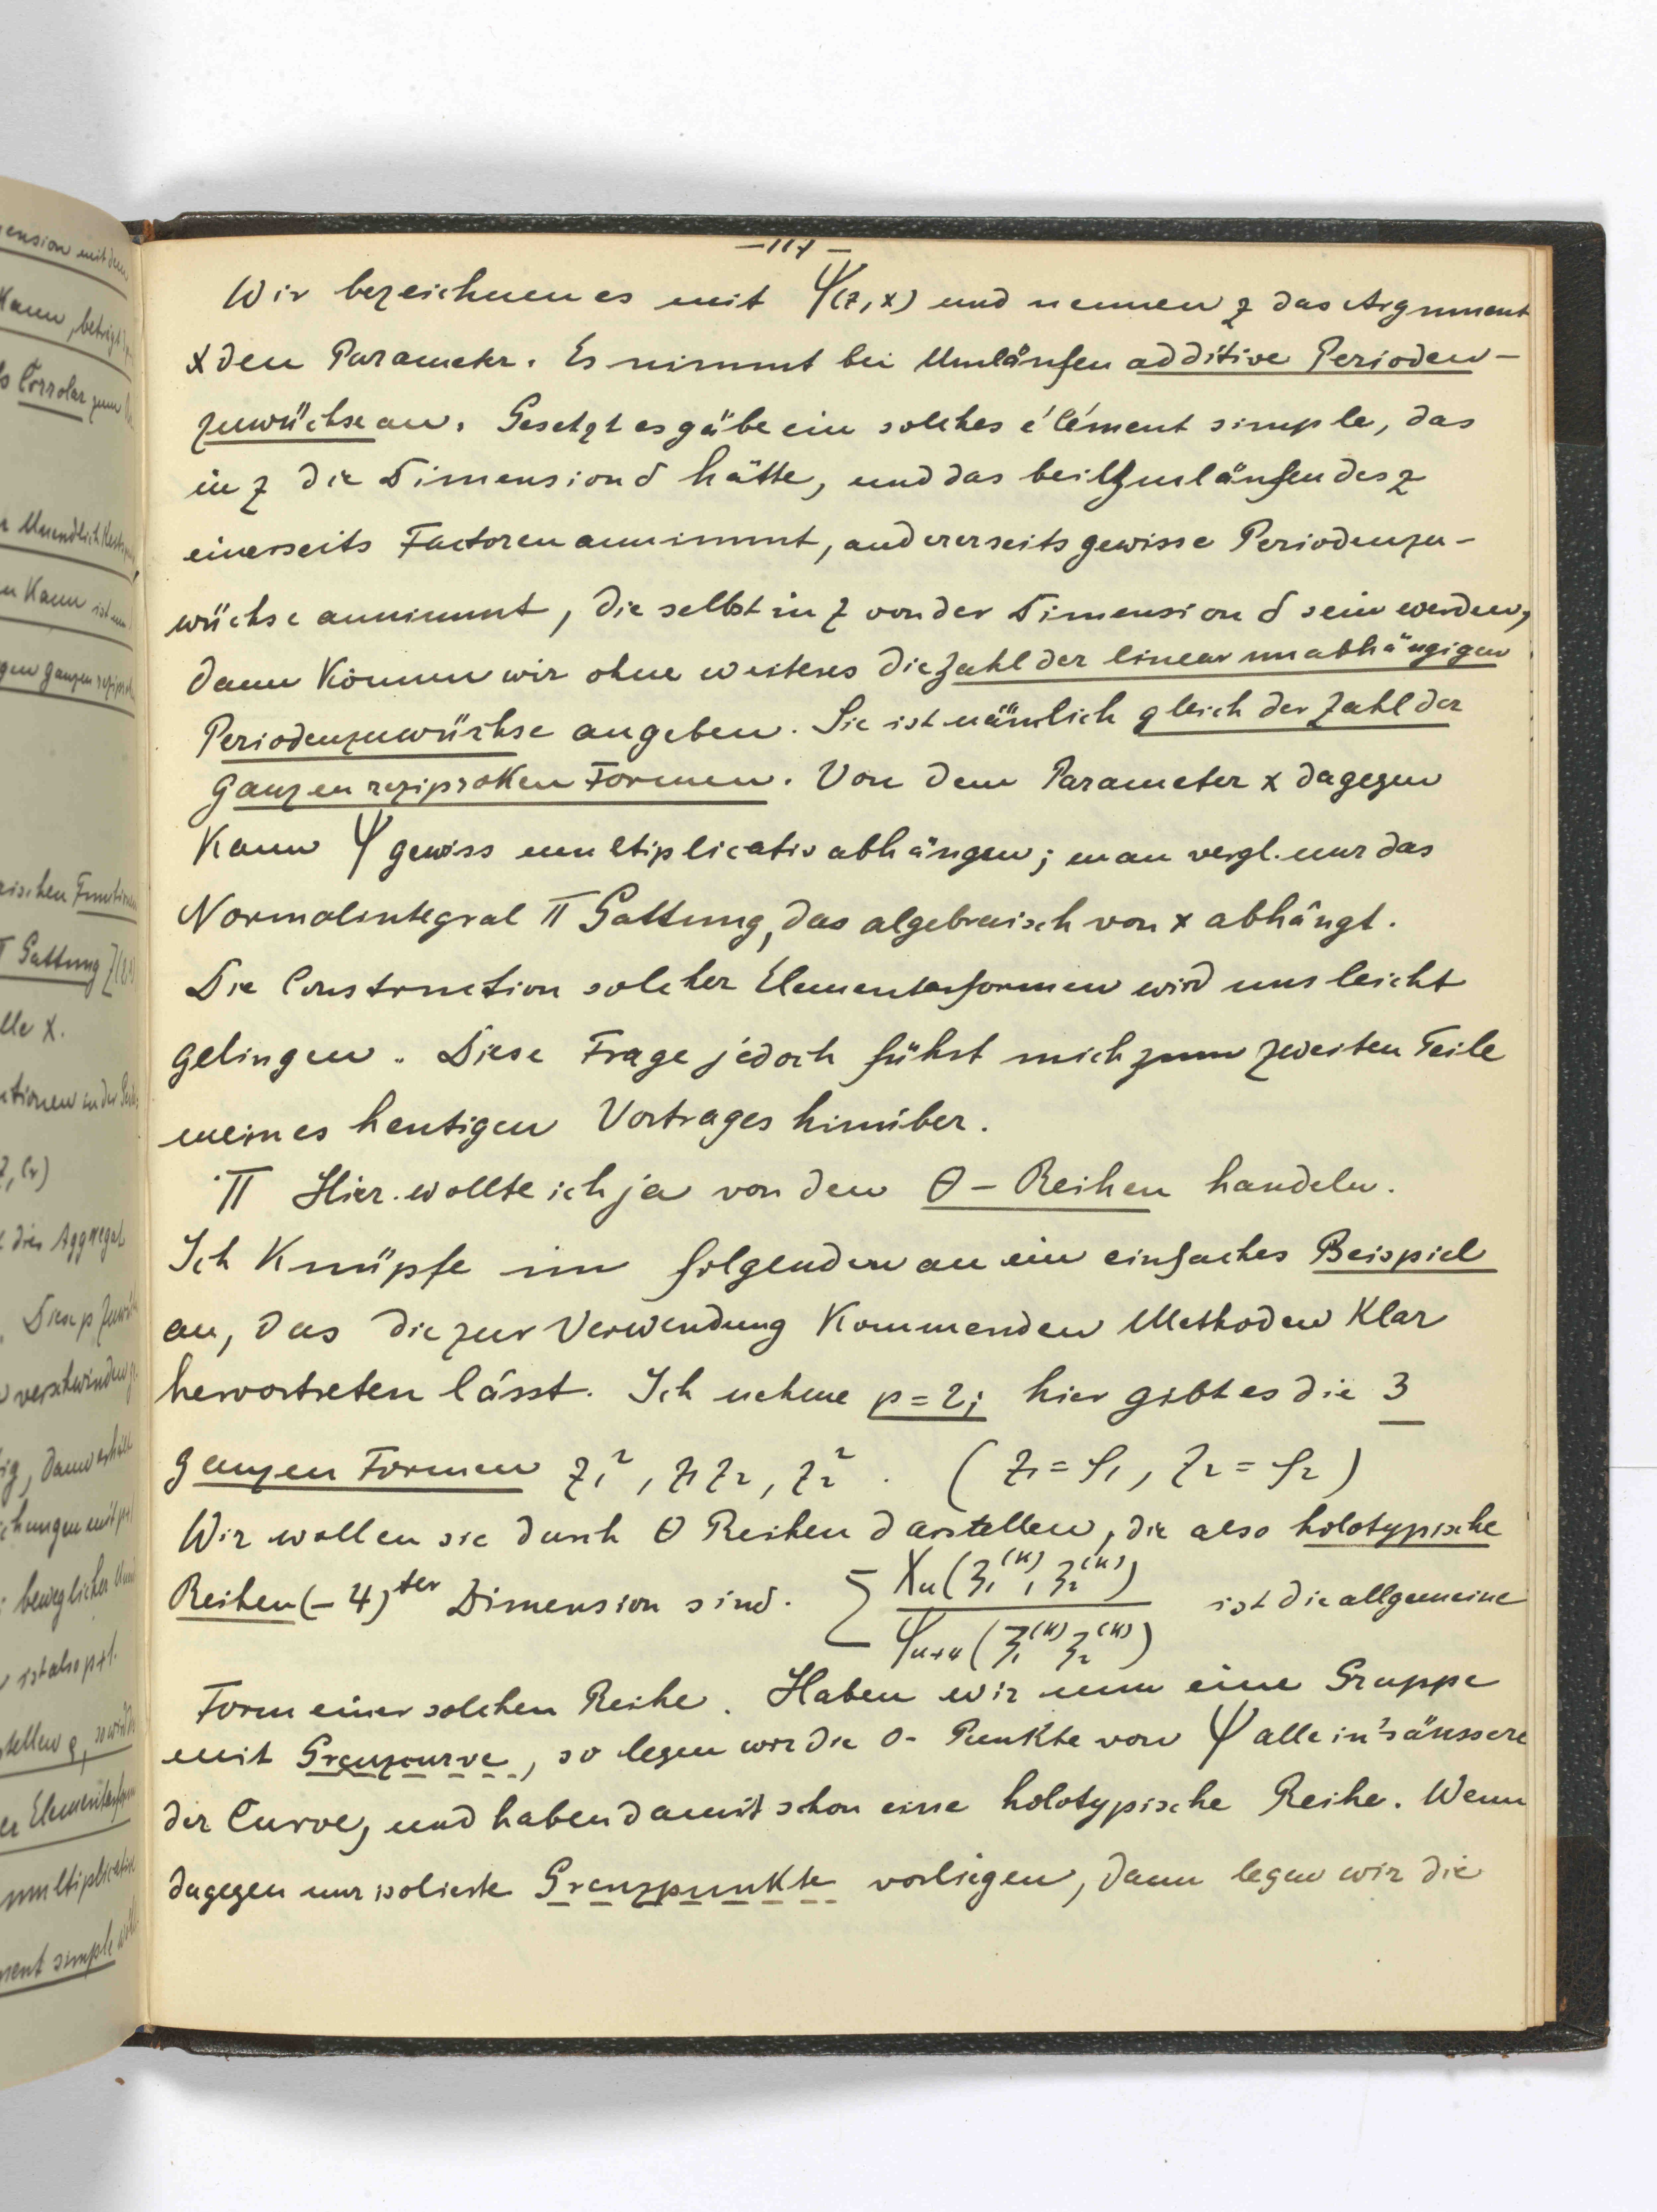 —117—
Wir bezeichnen es mit Ψ(z,x) und nennen z das Argument
x den Parameter. Es nimmt bei Umläufen additive Perioden-
zuwüchse an. Gesetzt es gäbe ein solches élément simple, das
in z die Dimension d hätte, und das bei Umläufen des z
einerseits Factoren annimmt, andererseits gewisse Periodenzu-
wüchse annimmt, die selbst in z von der Dimension d sein werden,
dann können wir ohne weiteres die Zahl der linear unabhängigen
Periodenzuwüchse angeben. Sie ist nämlich gleich der Zahl der
ganzen reziproken Formen. Von dem Parameter x dagegen
kann Ψ gewiss multiplicativ abhängen; man vergl. nur das
Normalintegral II Gattung, das algebraisch von x abhängt.
Die Construction solcher Elementarformen wird uns leicht
gelingen. Diese Frage jedoch führt mich zum zweiten Teile
meines heutigen Vortrages hinüber.
II Hier wollte ich ja von den Θ-Reihen handeln.
Ich knüpfe im folgenden an ein einfaches Beispiel
an, das die zur Verwendung kommenden Methoden klar
hervortreten lässt. Ich nehme p=2; hier gibt es die 3
ganzen Formen z₁², z₁z₂, z₂². (z₁=φ₁, z₂=φ₂)
Wir wollen sie durch Θ Reihen darstellen, die also holotypische
Reihen (-4)ter Dimension sind. Σ Χₙ(ζ₁⁽ᵏ⁾, ζ₂⁽ᵏ⁾) / Ψₙ₊₄(ζ₁⁽ᵏ⁾ ζ₂⁽ᵏ⁾) ist die allgemeine
Form einer solchen Reihe. Haben wir nun eine Gruppe
mit Grenzcurve, so legen wir die 0-Punkte von Ψ alle in's äussere
der Curve, und haben damit schon eine holotypische Reihe. Wenn
dagegen nur isolierte Grenzpunkte vorliegen, dann legen wir die